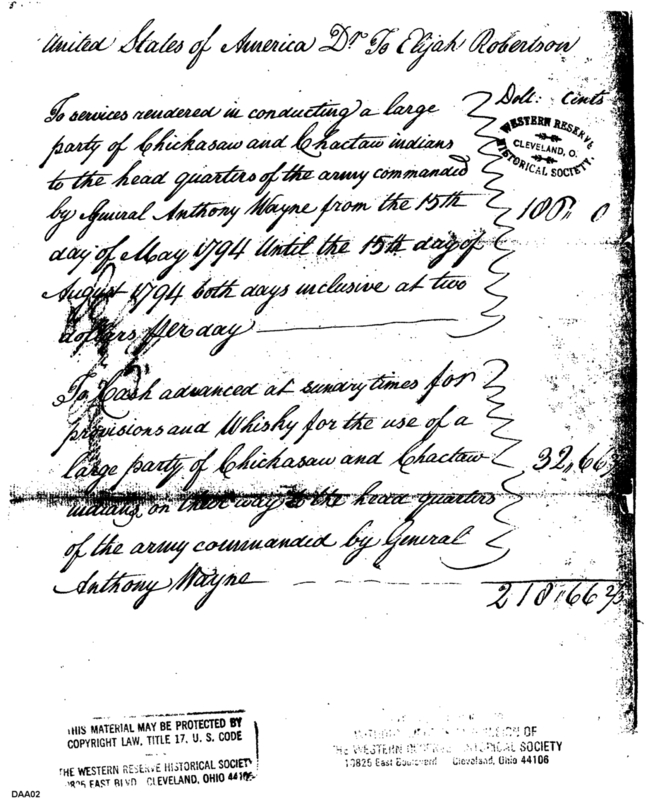 United States of America Dr To Elijah Robertson
Doll: Cents
To services rendered in conducting a large
party of Chickasaw and Chactaw indians
to the head quarters of the army commanded
by General Anthony Wayne from the 15th
day of May 1794 Until the 15th day of
August 1794 both days inclusive at two
dollars per day
186 " 0
WESTERN RESERVE
CLEVELAND, O.
HISTORICAL SOCIETY.
To Cash advanced at sundry times for
provisions and Whisky for the use of a
large party of Chickasaw and Chactaw
indians on their way to the head quarters
of the army commanded by General
Anthony Wayne
32,66
218 " 66 2/3
THIS MATERIAL MAY BE PROTECTED BY
COPYRIGHT LAW, TITLE 17, U. S. CODE
THE WESTERN RESERVE HISTORICAL SOCIETY
10825 EAST BLVD CLEVELAND, OHIO 44106
OF
THE WESTERN RESERVE HISTORICAL SOCIETY
10825 East Boulevard Cleveland, Ohio 44106
DAA02